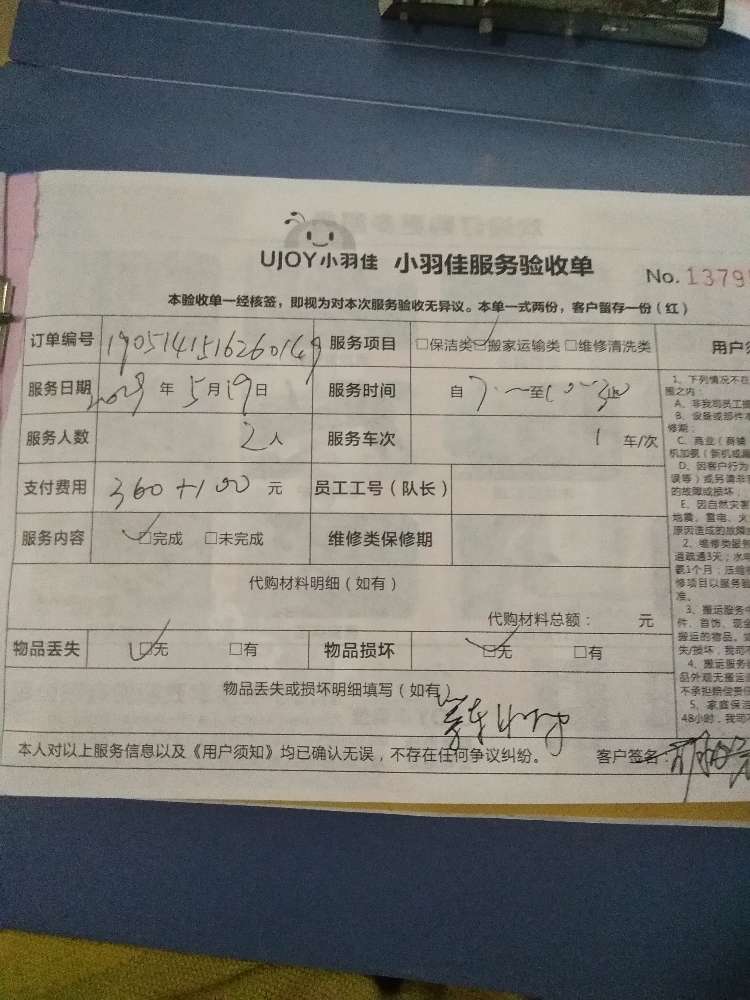 UJOY小羽佳 小羽佳服务验收单
No. 1379
本验收单一经核签，即视为对本次服务验收无异议。本单一式两份，客户留存一份（红）
订单编号 190514151626014 服务项目 □保洁类 □搬家运输类 □维修清洗类
用户须
服务日期 年 5月19日 服务时间 自 至
服务人数 2人 服务车次 1 车/次
支付费用 360+100 元 员工工号（队长）
服务内容 □完成 □未完成 维修类保修期
代购材料明细（如有）
代购材料总额： 元
物品丢失 □无 □有 物品损坏 □无 □有
物品丢失或损坏明细填写（如有）
本人对以上服务信息以及《用户须知》均已确认无误，不存在任何争议纠纷。 客户签名：
1、下列情况不在
围之内：
A、非我司员工
B、设备或部件
修期；
C、商业（商铺
机加氨（新机或
D、因客户行为
误等）或另请非
的故障或损坏；
E、因自然灾害
地震、雷电、火
原因造成的故障
2、维修类服务
道疏通3天；水
修项目以服务验
准。
3、搬运服务
件、首饰、现金
搬运的物品。
失/损坏，我司不
4、搬运服务
品外观无搬运
不承担赔偿责任
5、家庭保洁
48小时，我司